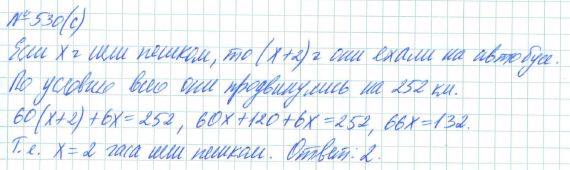 №530(с)
Если x ч шли пешком, то (x+2) ч они ехали на автобусе.
По условию всего они продвинулись на 252 км.
60(x+2)+6x=252, 60x+120+6x=252, 66x=132.
Т.е. x=2 часа шли пешком. Ответ: 2.